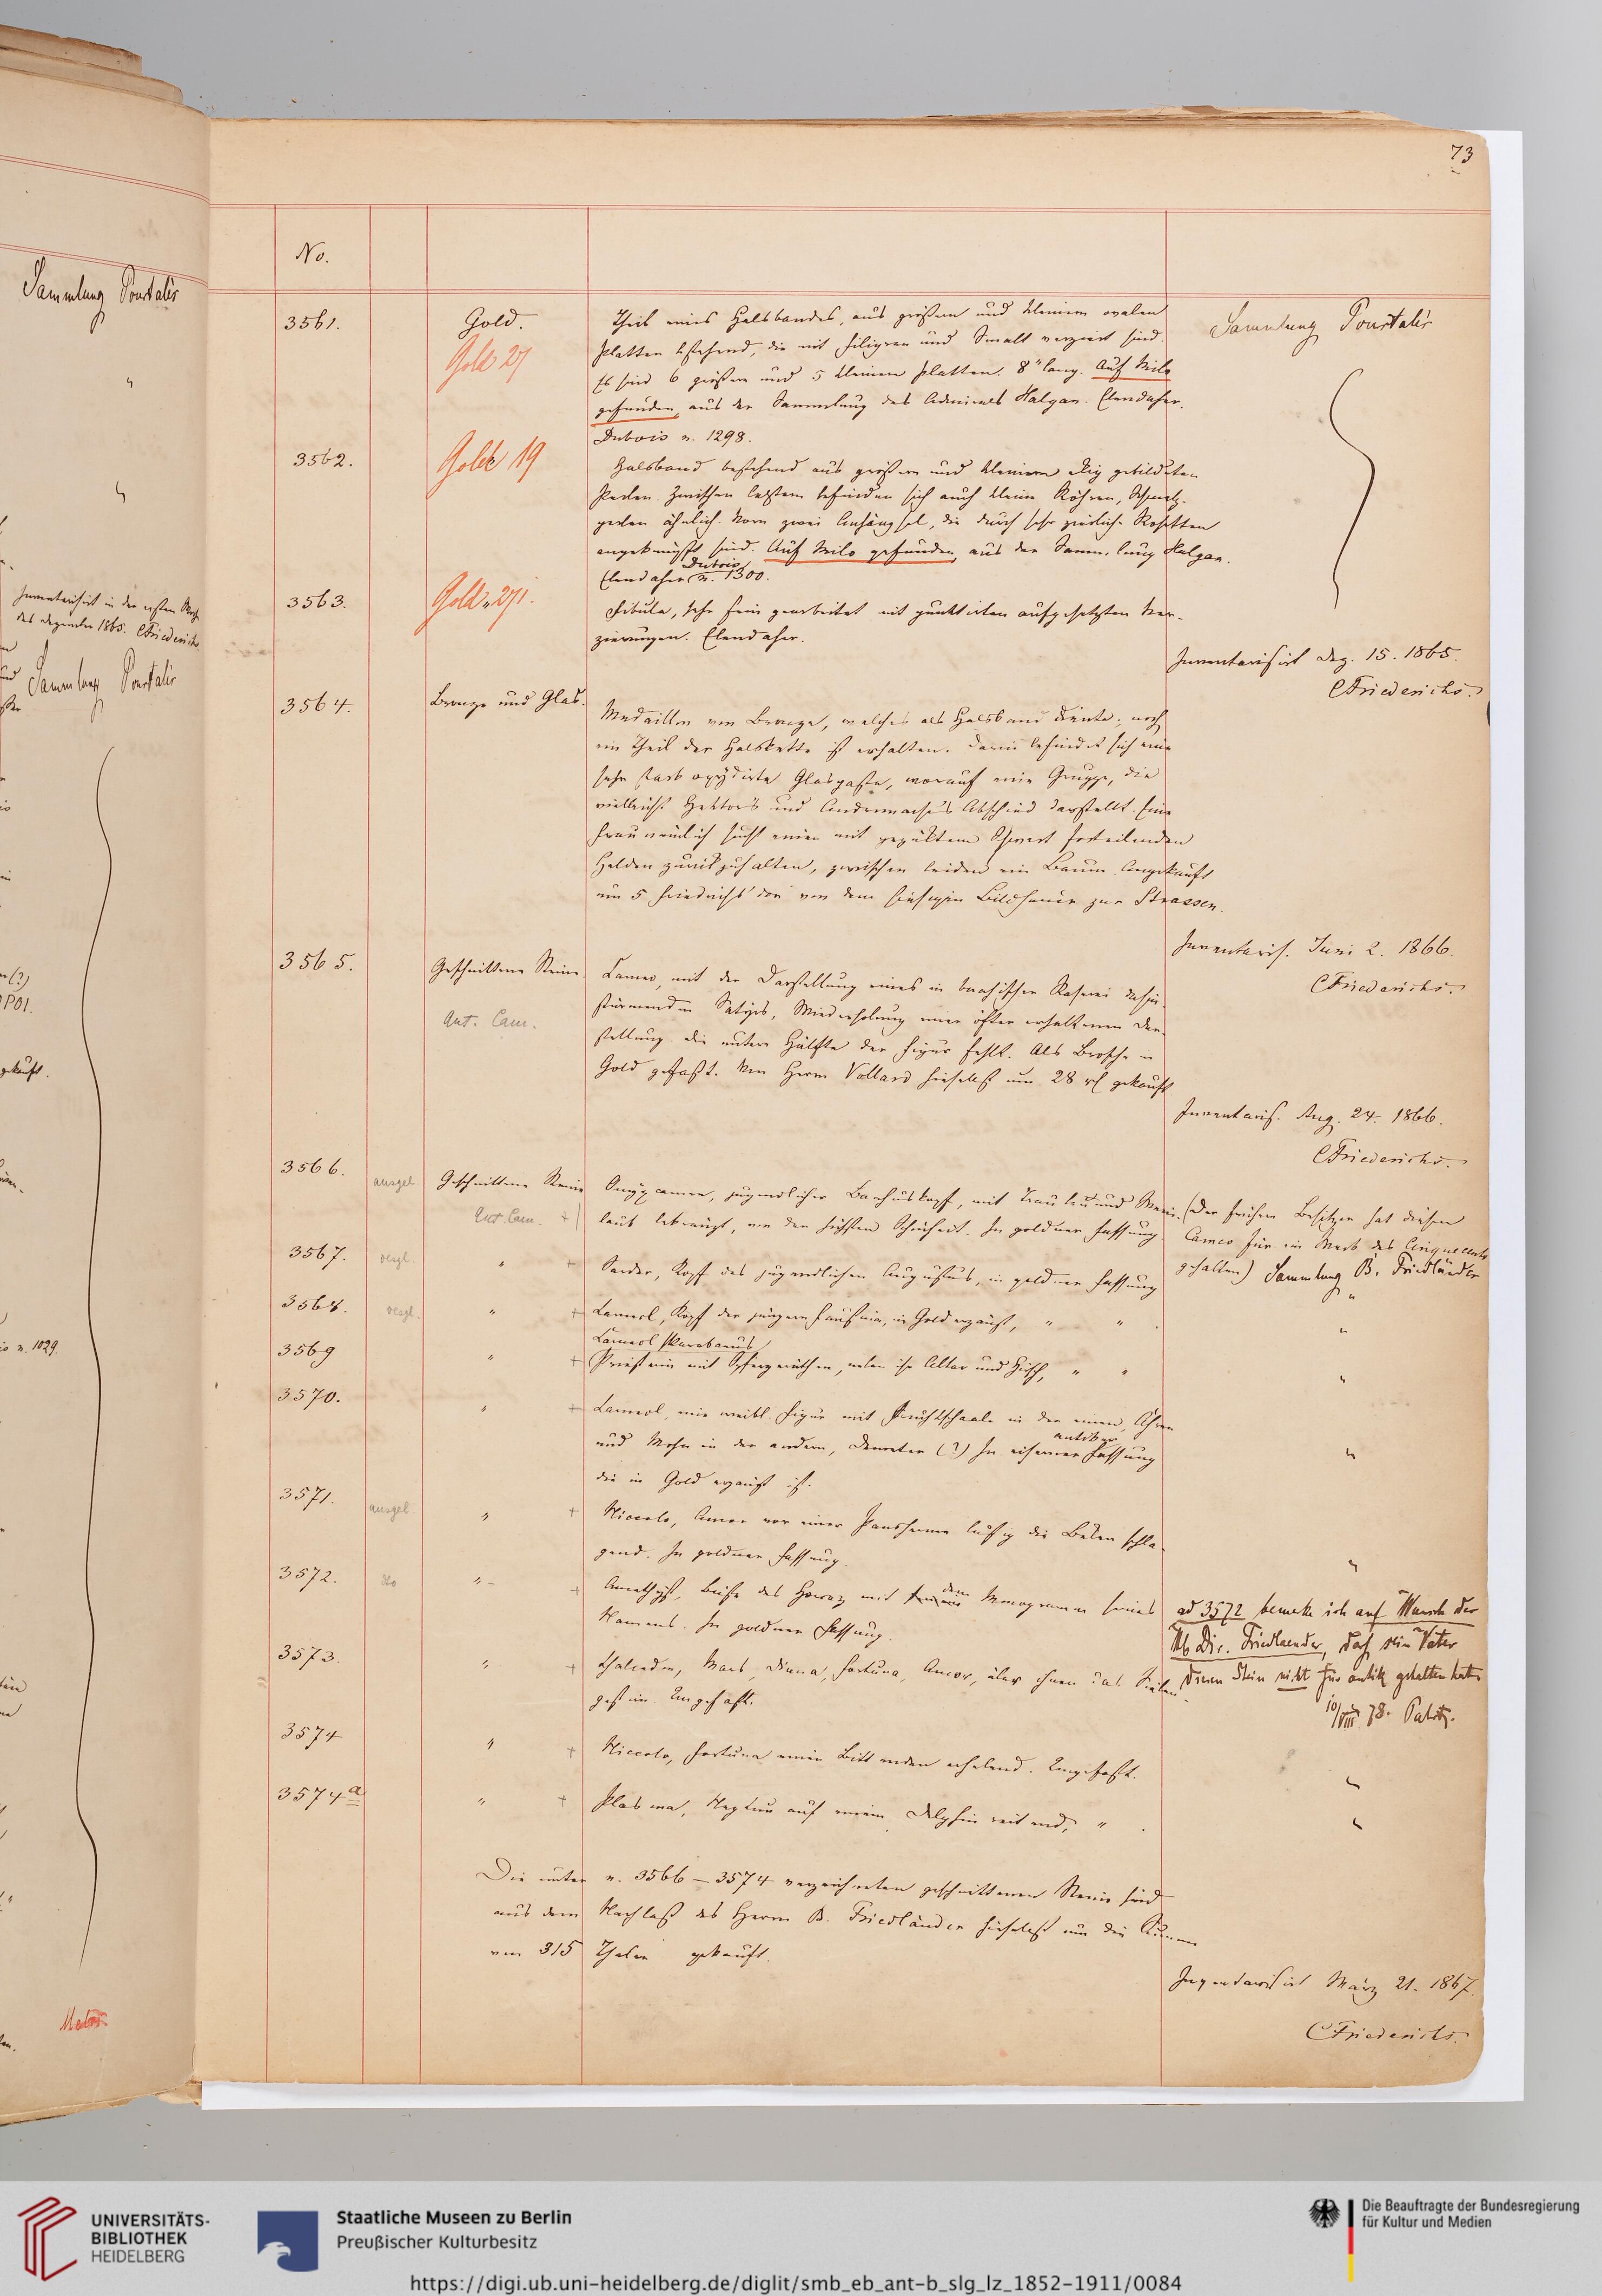 73
No.
Sammlung Pourtalès
3561.
Gold.
Gold 27
Theil eines Halsbandes, aus größern und kleinern ovalen
Platten bestehend, die mit Filigran und Smalt verziert sind.
Es sind 6 größere und 5 kleinere Platten. 8" lang. Auf Milo
gefunden, aus der Sammlung des Admirals Halgan. Ebendaher.
Dubois n. 1298.
Sammlung Pourtalès
3562.
Gold 19
Halsband bestehend aus größern und kleinern gebildeten
Perlen. Zwischen letztern befinden sich auch kleine Röhren, Schmelz-
perlen ähnlich. Vorn zwei Anhängsel, die durch sehr zierliche Rosetten
angeknüpft sind. Auf Milo gefunden, aus der Sammlung Halgan.
Ebendaher Dubois n. 1300.
3563.
Gold 271.
Fibula, sehr fein gearbeitet mit punktirten aufgesetzten Ver-
zierungen. Ebendaher.
Inventarisirt Dez. 15. 1865.
CFriederichs.
3564.
Bronze und Glas.
Medaillon von Bronze, welches als Halsband diente; noch
ein Theil der Halskette ist erhalten. Darin befindet sich eine
sehr stark oxydirte Glaspaste, worauf eine Gruppe, die
vielleicht Hektors und Andromache's Abschied darstellt. Eine
Frau nämlich sucht einen mit gezücktem Schwert forteilenden
Helden zurückzuhalten, zwischen beiden ein Baum. Angekauft
um 5 Friedrichsdor von dem hiesigen Bildhauer zur Strassen.
Inventaris. Juni 2. 1866.
CFriederichs.
3565.
Geschnittene Steine.
Ant. Cam.
Cameo, mit der Darstellung eines in bachischer Raserei dahin-
stürmenden Satyrs, Wiederholung einer öfter erhaltenen Dar-
stellung. Die untere Hälfte der Figur fehlt. Als Brosche in
Gold gefaßt. Von Herrn Vollard hieselbst um 28 rl gekauft
Inventaris. Aug. 24. 1866.
CFriederichs.
3566.
ausgel
Geschnittene Steine
Ant. Cam. +
Onyxcameo, jugendlicher Bachuskopf, mit Trauben und Wein-
laub bekränzt, von der höchsten Schönheit. In goldner Fassung.
(Der frühere Besitzer hat diesen
Cameo für ein Werk des Cinquecento
gehalten) Sammlung B. Friedländer
3567.
" +
Sarder, Kopf des jugendlichen Augustus, in goldner Fassung
"
3568.
" +
Carneol, Kopf der jüngern Faustina, in Gold gefaßt, " " .
"
3569
" +
Carneol Skarabaeus
Priesterin mit Opfergeräthen, neben ihr Altar und Hirsch, " "
"
3570.
" +
Carneol, eine weibl. Figur mit Fruchtschaale in der einen, Ähren
und Mohn in der andern, Demeter (?) In eiserner antiker Fassung
die in Gold gefaßt ist.
"
3571.
ausgel.
" +
Niccolo, Amor vor einer Pansherme lustig die Becken schla-
gend. In goldner Fassung.
"
3572.
do
" +
Amethyst, Büste des Horaz mit dem Monogramm seines
Namens. In goldner Fassung.
ad 3572 bemerke ich auf Wunsch des
Hb. Dir. Friedlaender, daß sein Vater
diesen Stein nicht für antik gehalten hat.
10/VIII 78.
3573.
" +
Chalcedon, Mars, Diana, Fortuna, Amor, über ihnen das Sieben-
gestirn. Ungefaßt.
3574
" +
Niccolo, Fortuna einen Bittenden erhebend. Ungefaßt.
"
3574a
" +
Plasma, Neptun auf einem Delphin reitend, " .
"
Die unter n. 3566 – 3574 verzeichneten geschnittenen Steine sind
aus dem Nachlaß des Herrn B. Friedländer hieselbst um die Summe
von 315 Thaler gekauft.
Inventarisirt März 21. 1867.
CFriederichs.
Inventarisirt in der ersten Woche
des Dezember 1865. CFriederichs
Sammlung Pourtalès
n. 1029.
UNIVERSITÄTS-
BIBLIOTHEK
HEIDELBERG
Staatliche Museen zu Berlin
Preußischer Kulturbesitz
Die Beauftragte der Bundesregierung
für Kultur und Medien
https://digi.ub.uni-heidelberg.de/diglit/smb_eb_ant-b_slg_lz_1852-1911/0084